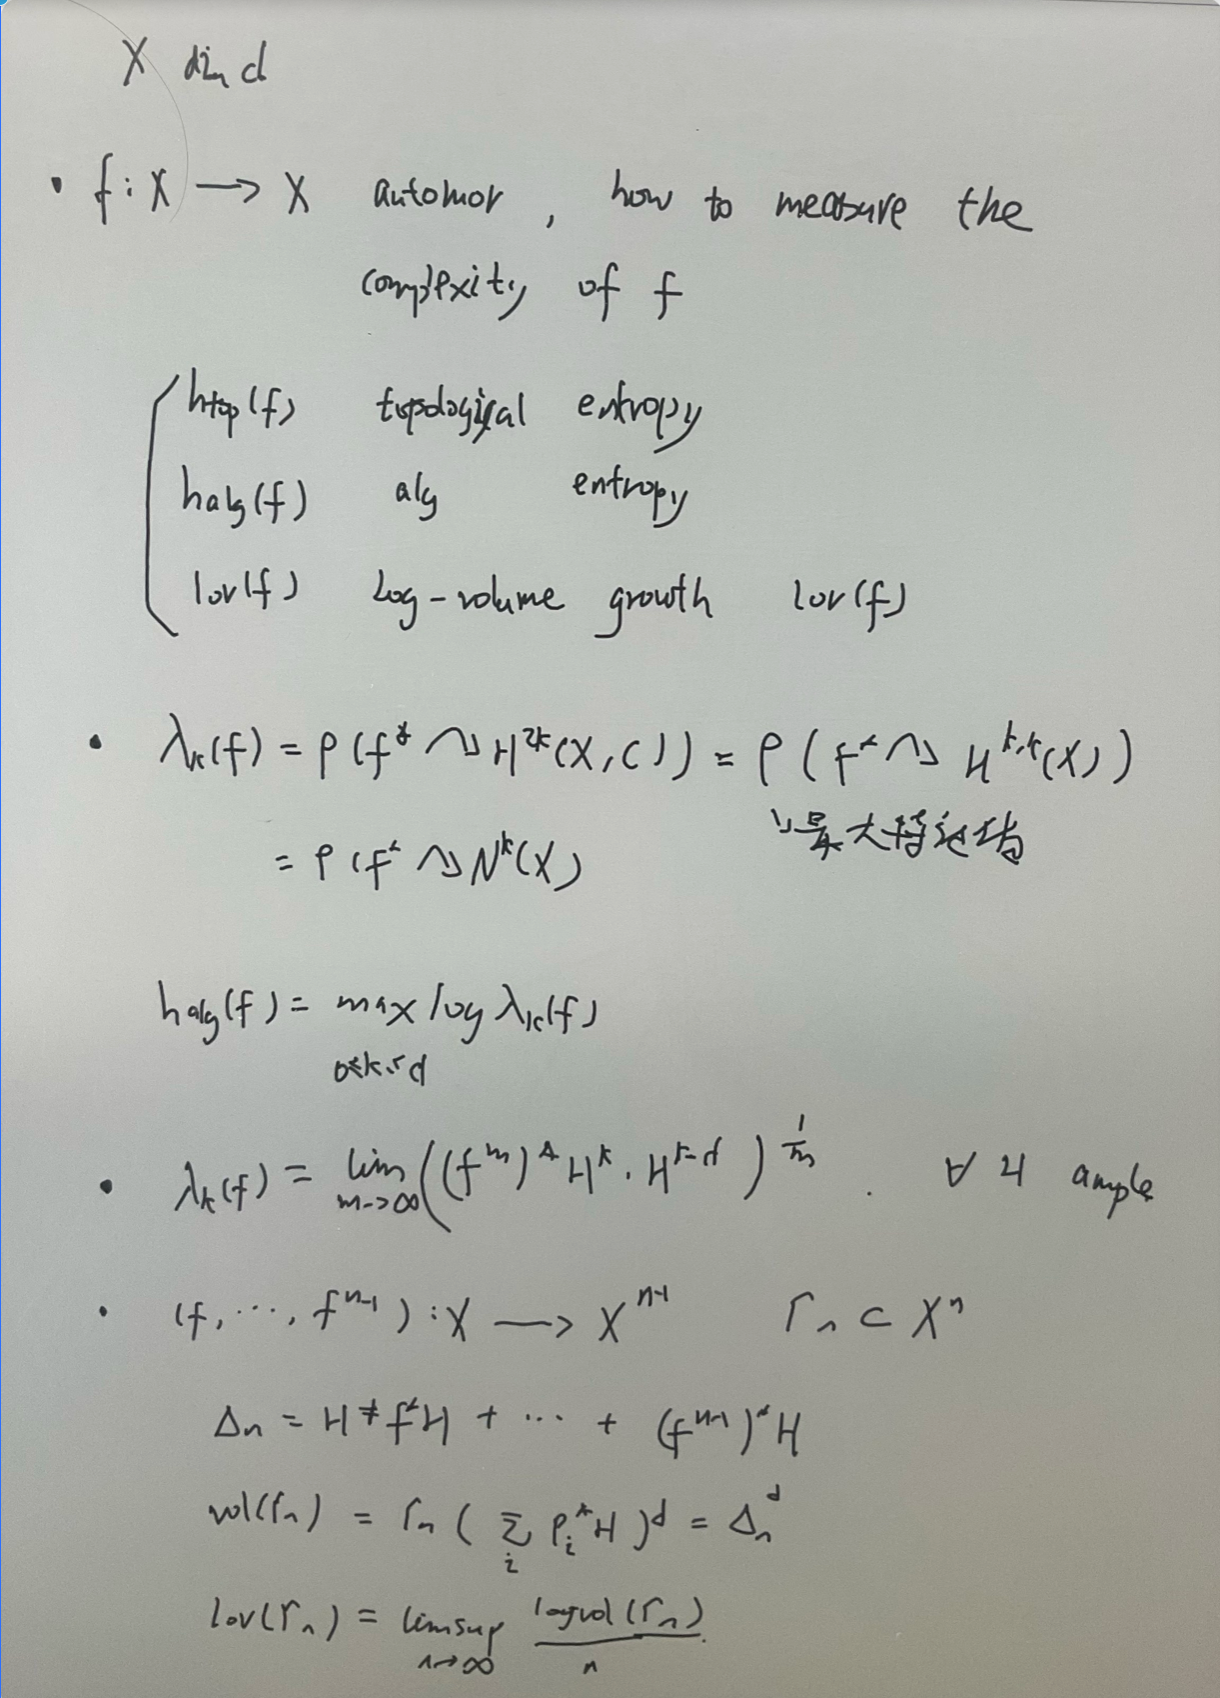 X dim d
• f : X → X automor, how to measure the
complexity of f
htop(f) topological entropy
halg(f) alg entropy
lov(f) Log-volume growth lov(f)
• λk(f) = ρ(f* ↷ H^{2k}(X, C)) = ρ(f* ↷ H^{k,k}(X))
最大特征值
= ρ(f* ↷ N^k(X)
halg(f) = max log λk(f)
0≤k≤d
• λk(f) = lim_{m→∞} ((f^m)* H^k · H^{k-d})^{1/m} . ∀ H ample
• (f, ⋯, f^{n-1}) : X → X^{n-1} Γn ⊂ X^n
Δn = H + f*H + ⋯ + (f^{n-1})*H
vol(Γn) = Γn (Σ_i P_i^* H)^d = Δn^d
lov(Γn) = limsup_{n→∞} log vol(Γn) / n .